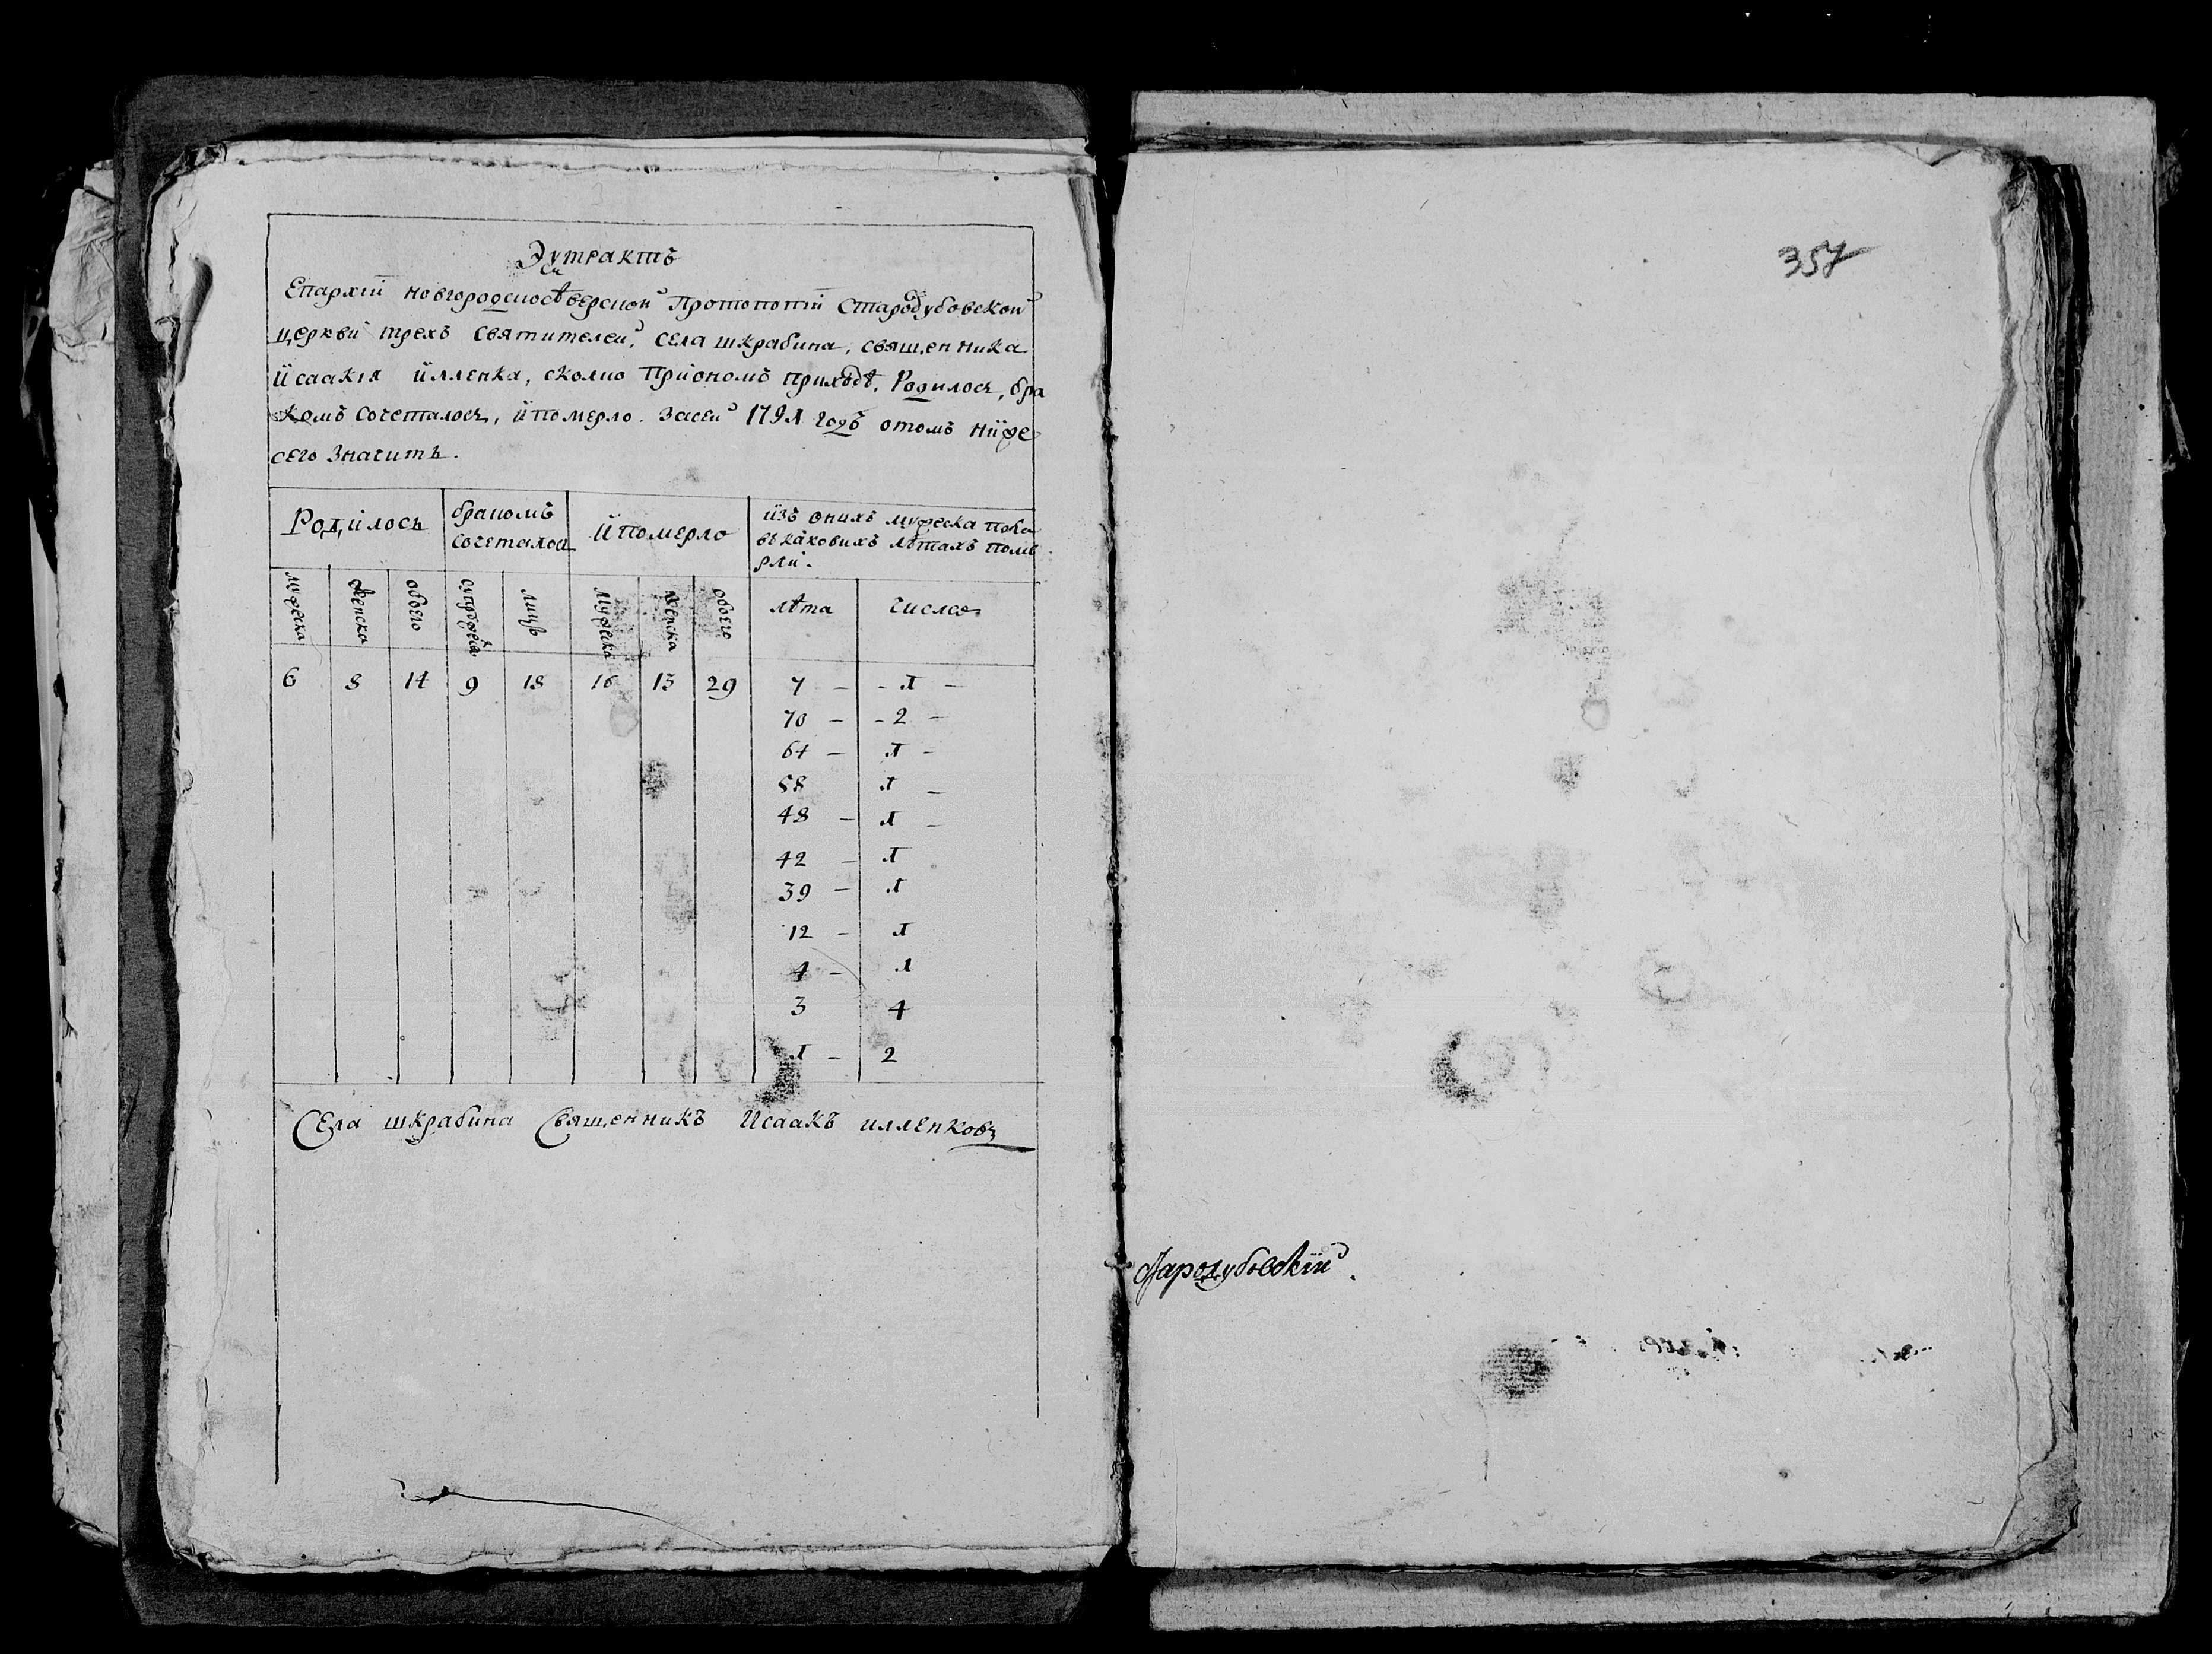 Экстрактъ
Епархіи новгородскосѣверской Протопопіи Стародубовской
церкви трехъ святителей, села шкрабина, священника
Исаакія илленка, сколко при ономъ приходѣ, Родилось, бра
комъ сочеталось, и померло. За сей 1791 годъ о томъ ниже
сего Значитъ.
Родилось бракомъ сочеталось и померло изъ онихъ мужеска пола въ каковихъ лѣтахъ поме рли.
мужеска женска обоего супружес. лицъ мужеска женска обоего лѣта число
6 8 14 9 18 16 13 29 7 - - 1 -
70 - - 2 -
64 - 1 -
58 1 -
48 - 1 -
42 - 1
39 - 1
12 - 1
4 - 1
3 4
1 - 2
Села шкрабина Священникъ Исаакъ илленковъ
357
стародубовскій.